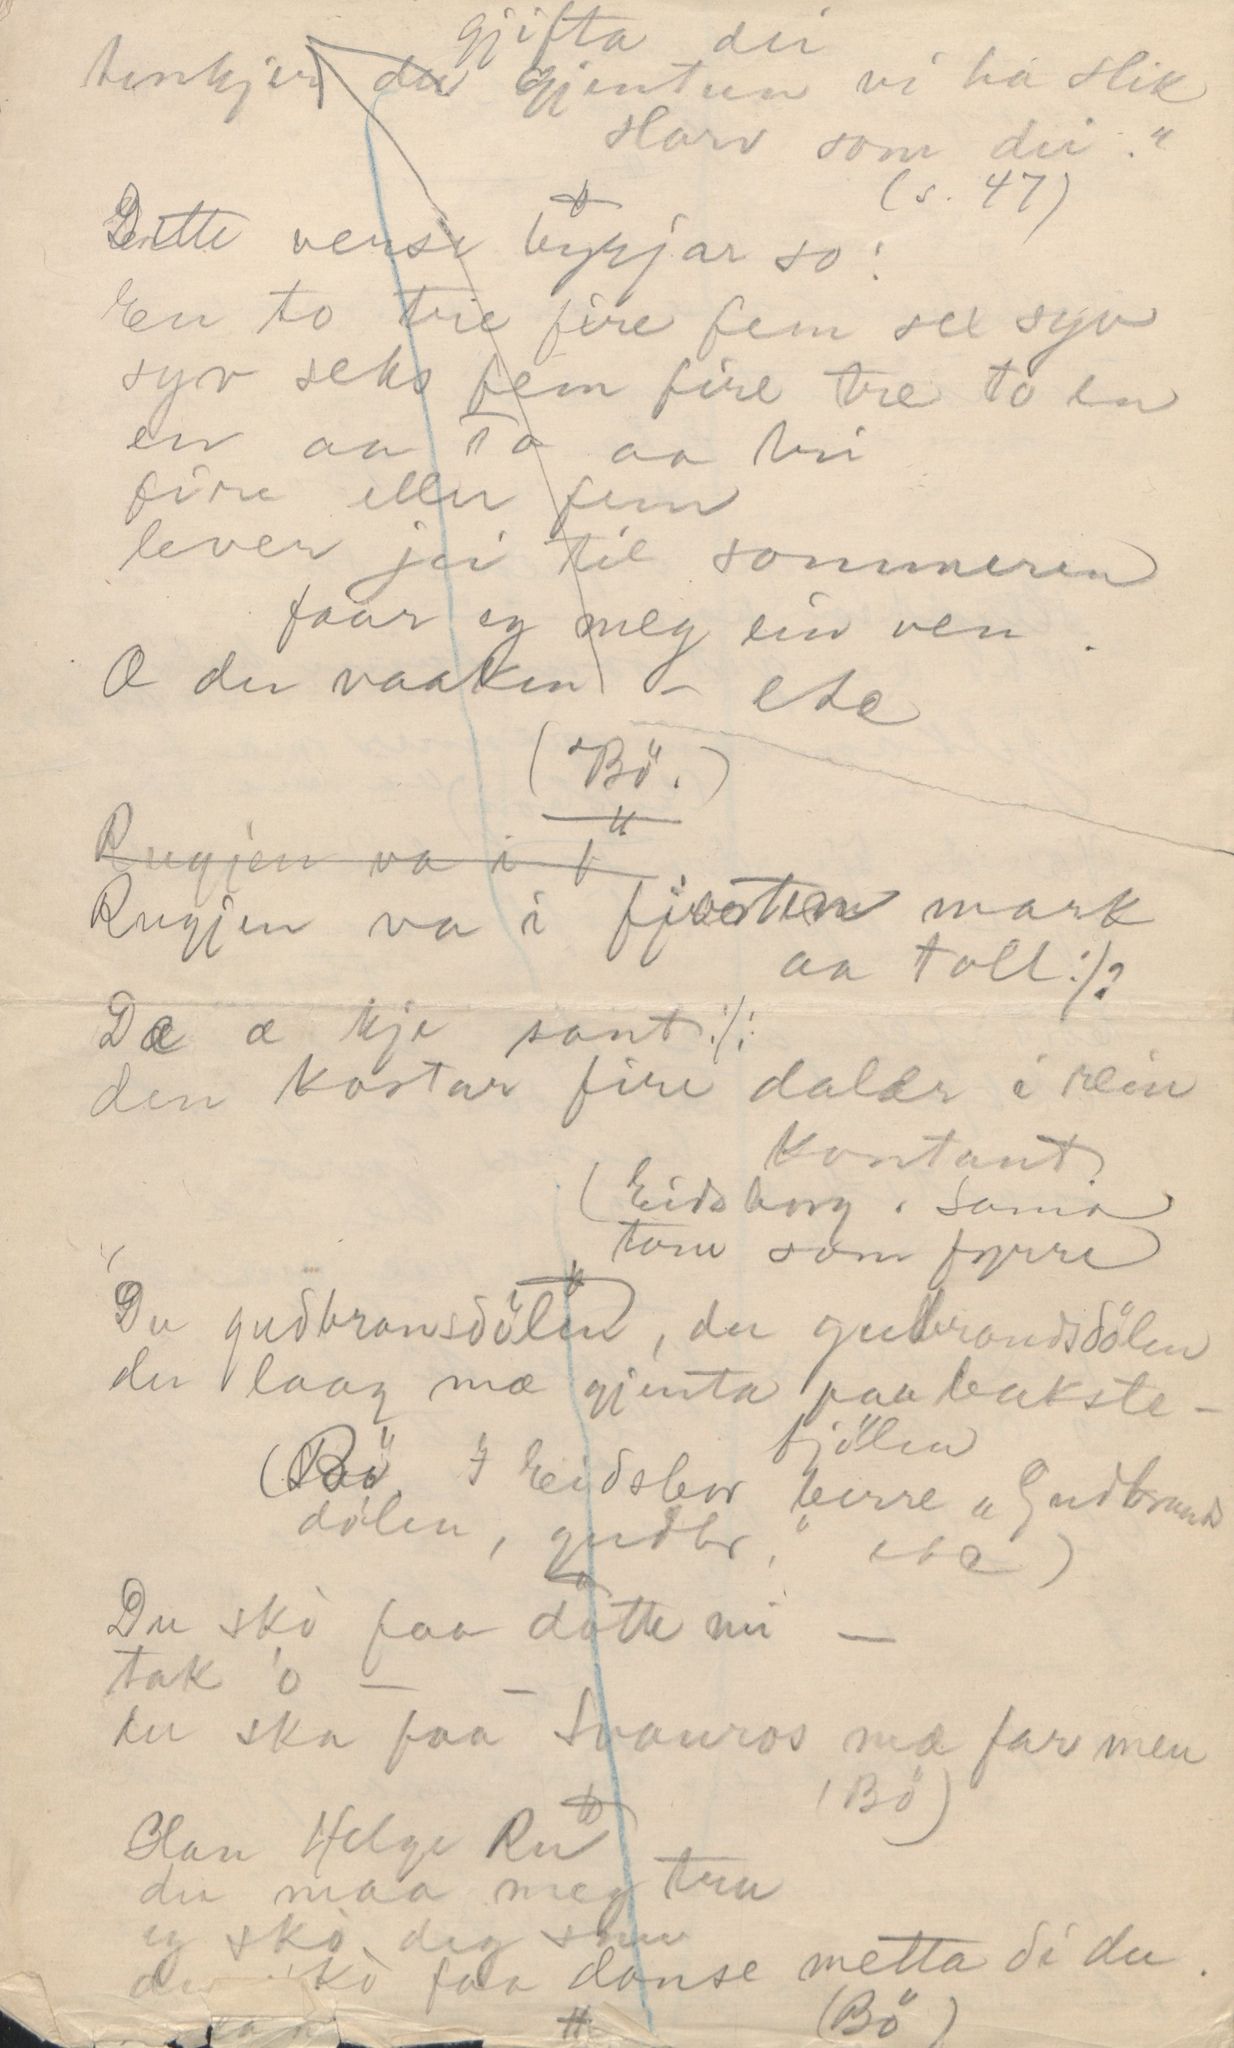 gjifta dei
tenkjer du gjentun vi ha slik
slarv som dei."
(s. 47)
Dette verse byrjar so:
En to tre fire fem sex syv
syv seks fem fire tre to en
en aa to aa tri
fire eller fem
lever jei til sommeren
faar eg meg ein ven.
O du vaaken - etc
("Bö".)
Rugjen va i f
Rugjen va i fjorten mark
aa toll :/?
Dæ æ kje sant :/:
den kostar fire dalar i rein
kontant.
(Eidsborg. Sama
tone som fyrre)
Du gudbransdölen, du gudbrandsdölen
du laag mæ gjenta paa bakste-
fjölen
(Bö. I Eidsbor berre "Gudbrands
dölen, gudbr," etc)
Du skò faa dotte mi —
tak 'o — —
du ska faa Svauros mæ far men
(Bö)
Han Helge Ru
du maa meg tru
eg skò deg snu
du skò faa danse metta di du.
(Bö)